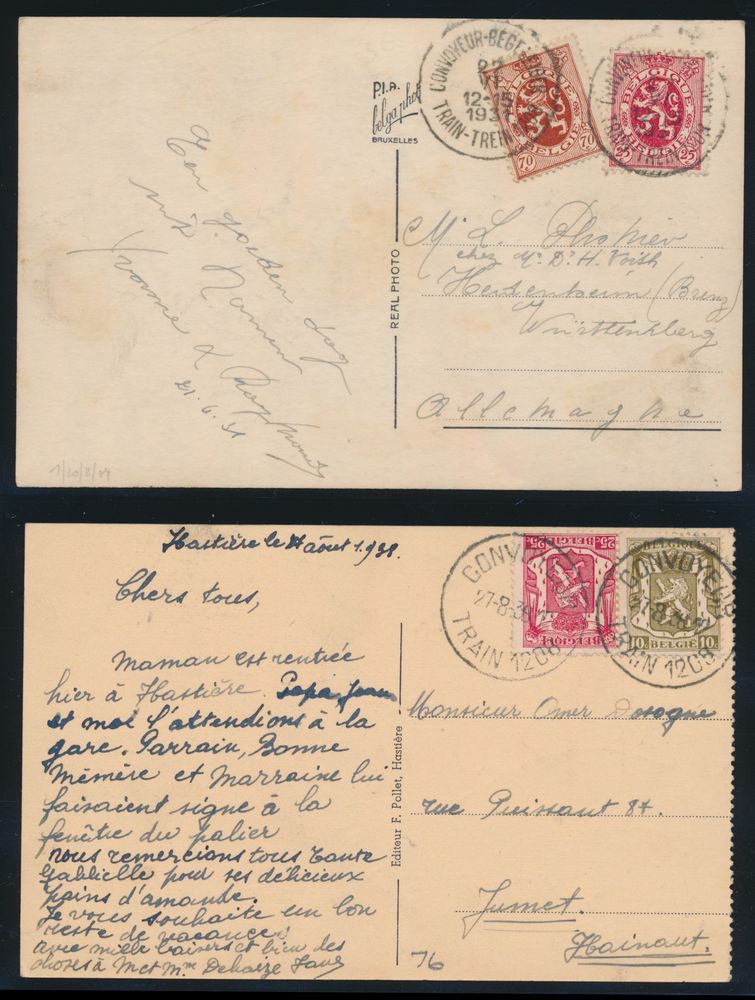 P.I.A.
belgaphot
BRUXELLES
REAL PHOTO
CONVOYEUR-BEGELEIDER
12-15
193
TRAIN-TREIN
BELGIQUE
70 BELGIE 70
BELGIQUE
25 BELGIE 25
TRAIN-TREIN
Een dag
uit Namen
Yvonne & Raymond
21.6.31
1/20/II/04
M L.
chez Mr Dr H. Voith
Heidenheim (Brenz)
Württemberg
Allemagne
Hastière le août 1938.
Chers tous,
Maman est rentrée
hier à Hastière. Papa, Jean
et moi l'attendions à la
gare. Parrain, Bonne
Mémère et Marraine lui
faisaient signe à la
fenêtre du palier
nous remercions tous tante
Gabrielle pour ses délicieux
pains d'amande.
Je vous souhaite un bon
reste de vacances!
avec mille baisers et bien des
choses à M et Mme Deharze
Editeur F. Pollet, Hastière
76
CONVOYEUR
27-8-38
TRAIN 1208
25c BELGIQUE 25c
CONVOYEUR
27-8-38
TRAIN 1208
10 BELGIË 10
Monsieur Omer Dosogne
rue Puissant 87.
Jumet.
Hainaut.